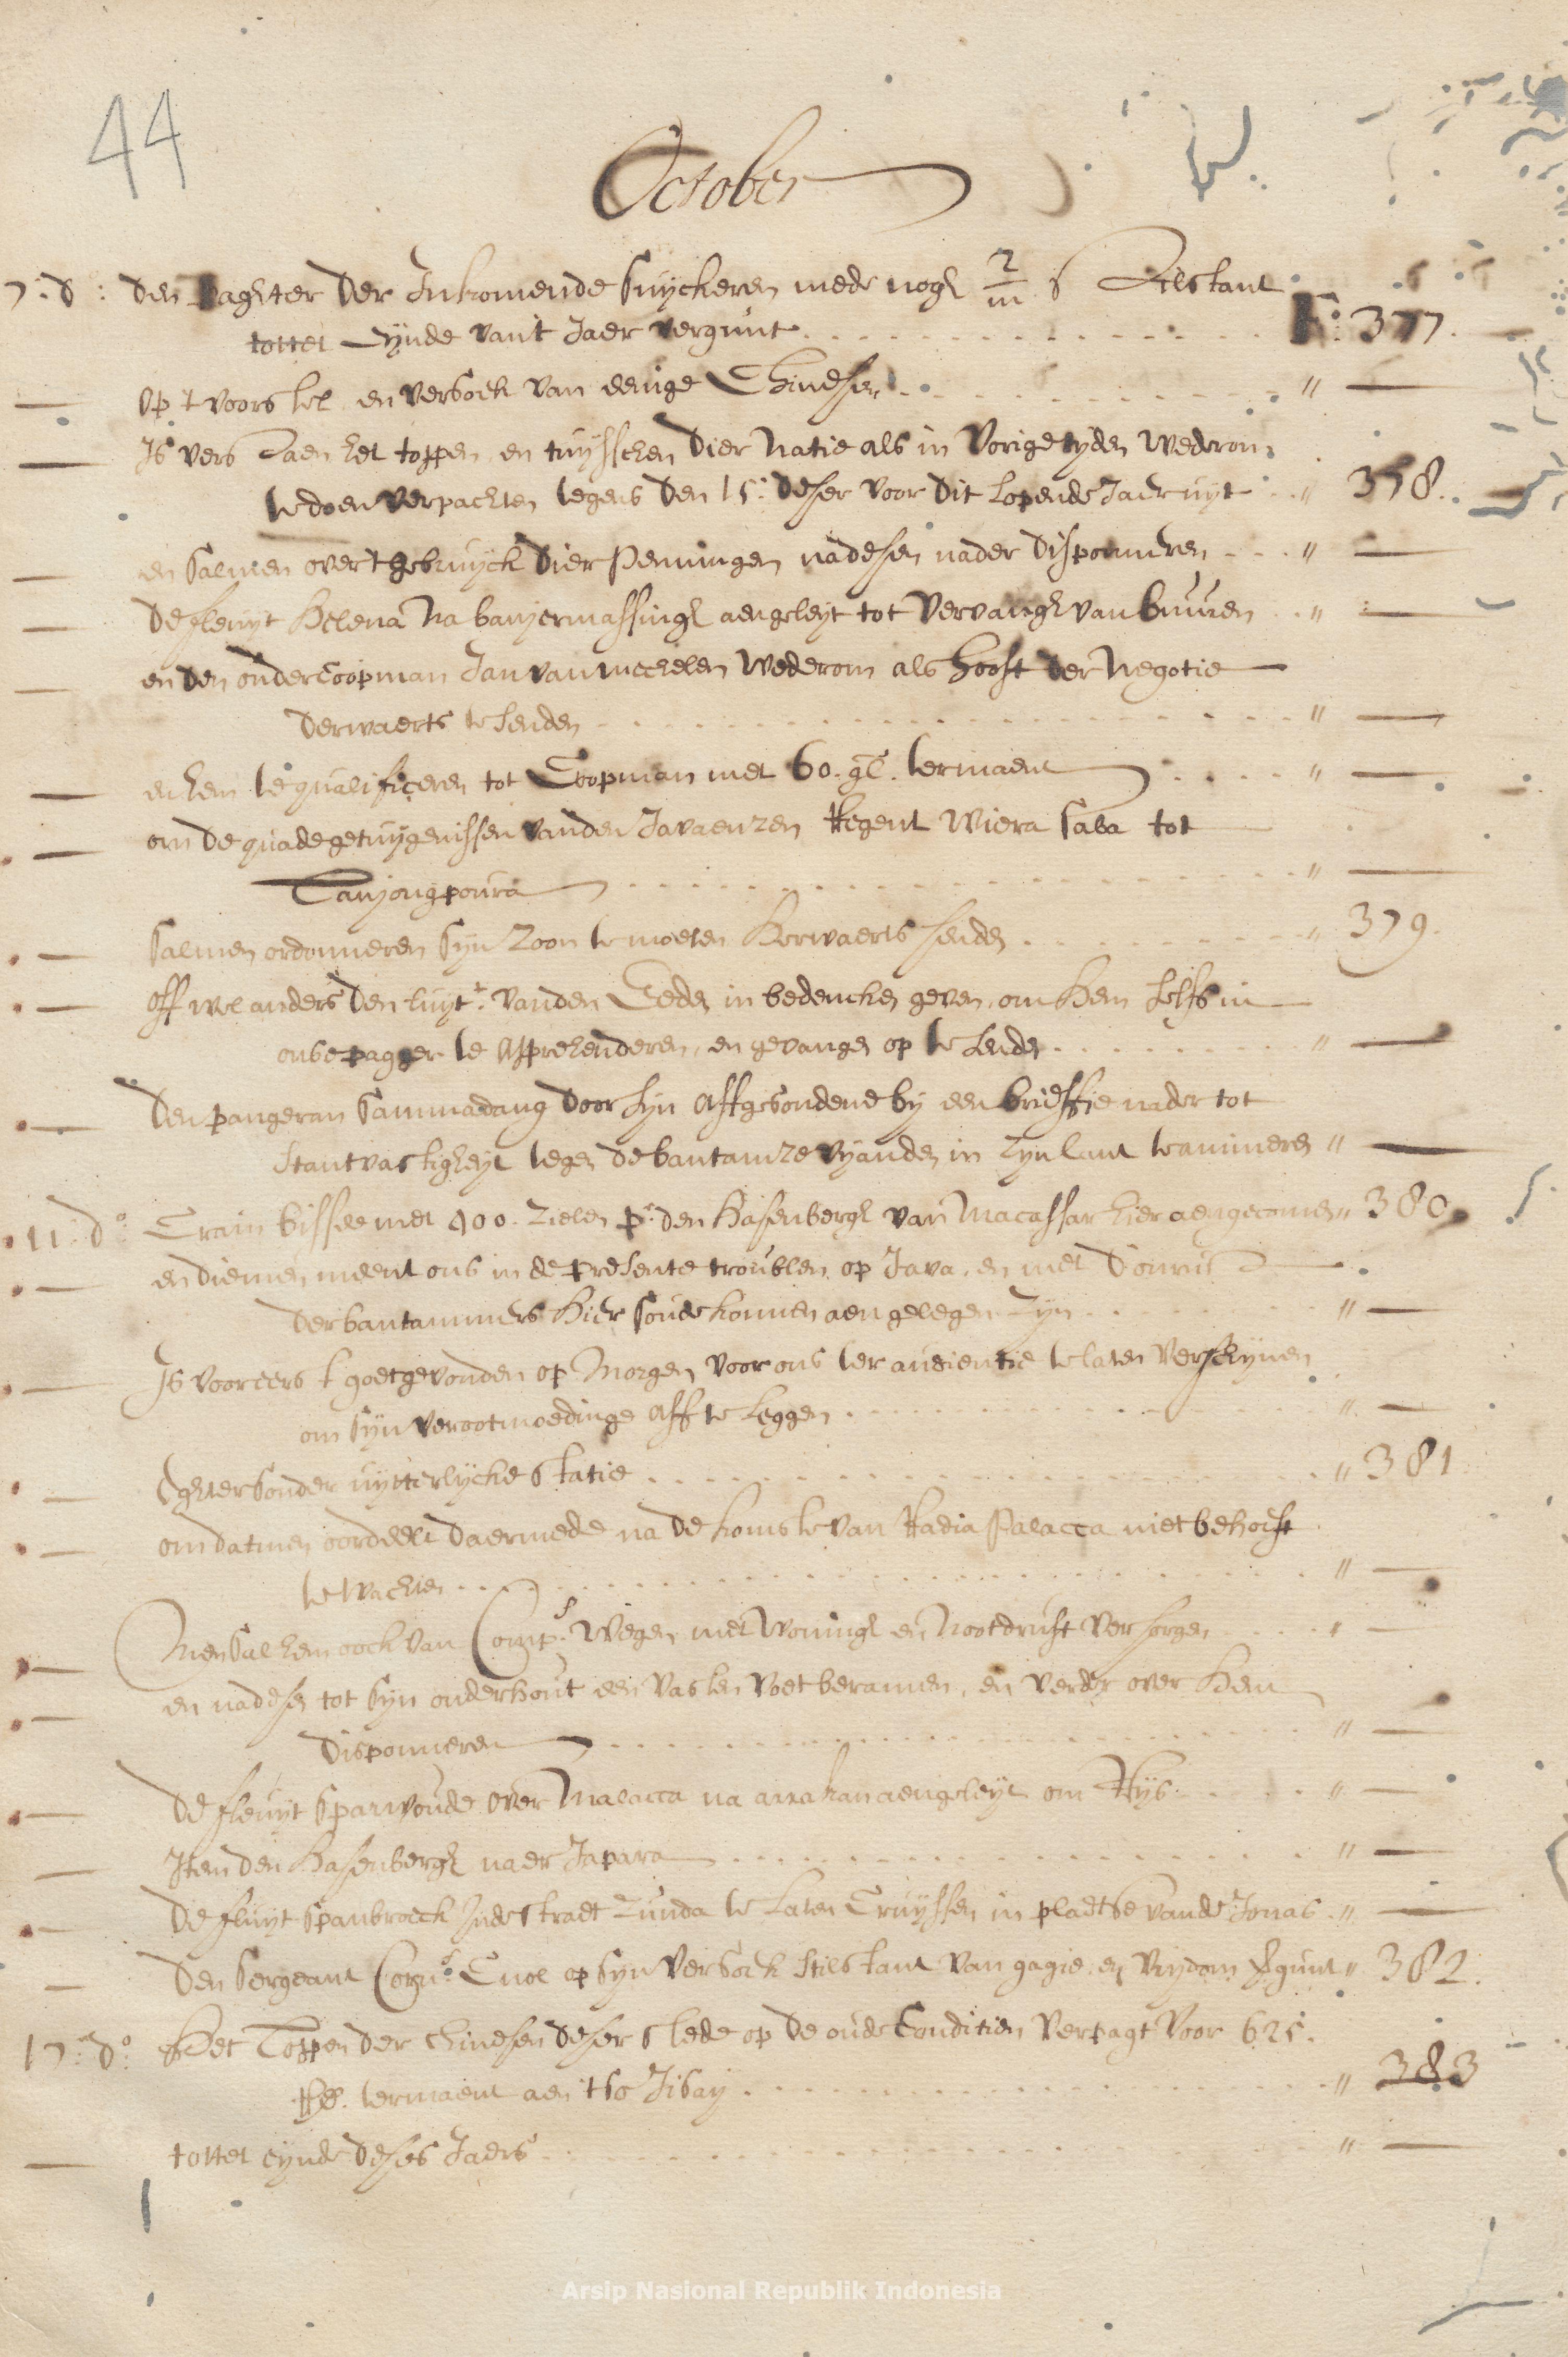 44
October
7: d:o den pagter der Inkomende Suyckeren mede nogh 2/m s Stilstant
tottet Eynde van't Jaer vergunt F:o 377.
— op 't voorstel en versoeck van eenige Chinesen " —
— Is verstaen het toppen en tuysschen dier Natie als in Vorige tyden Wederom
te doen verpachten tegens den 15:e deser voor dit Lopende Jaer uyt " 378.
— en Salmen over 't gebruyck dier Penningen nadesen nader disponneren " —
— de fleuyt Helena Na banjermassingh aengeleyt tot Vervangh van buuren " —
— en den ondercoopman Jan van Mechelen Wederom als hooft der Negotie
derwaerts te senden " —
— en hem te qualificeren tot Coopman met 60. gl. ter maent " —
— om de quade getuygenissen van den Javaenzen Regent Wiera Saba tot
Tanjongpoura " —
— Salmen ordonneren syn Zoon te moeten Herwaerts senden " 379.
— off wel anders den luyt:t van den Eeden in bedencken geven, om Hem selfs in
onse pagger te apprehenderen, en gevangen op te senden " —
— den pangeran Sammadang door syn affgesondene by een brieffie nader tot
Stantvastigheyt tegen de bantamze vyanden in zyn lant te animeren " —
11: d:o Crain bissee met 400. zielen p:r den Hasenbergh van Macassar hier aengecomen " 380.
— en diemen meent ons in de presente troublen op Java, en met d'onrust
der bantammers Hier soude konnen aengelegen zyn " —
— Is voor eerst goetgevonden op Morgen voor ons ter audientie te laten verschynen
om syn verootmoedinge aff te leggen " —
— Echter sonder uytterlycke statie " 381
— om datmen oordeelt daermede na de komste van Radia Palacca niet behoeft
te wachten " —
— Men sal hem oock van Comp:s Wegen met Woningh en Nootdruft versorgen " —
— en nadesen tot syn onderhout een vasten voet beramen, en verder over Hem
disponneren " —
— de fleuyt Sparwoude over Malacca na arrakan aengeleyt om Rys " —
— Item den Hasenbergh naer Japara " —
— de fluyt Spanbroeck Inde straet Zunda te Laten Cruyssen in plaetse van de Jonas " —
— den Sergeant Corn:s Cnol op syn versoeck stilstant van gagie en vrydom vergunt " 382.
17: d:o Het Toppen der Chinesen deser stede op de oude Conditien verpagt voor 625.
Rd. ter maent aen tso Jisay " 383
— tottet eynde deses Jaers " —
Arsip Nasional Republik Indonesia